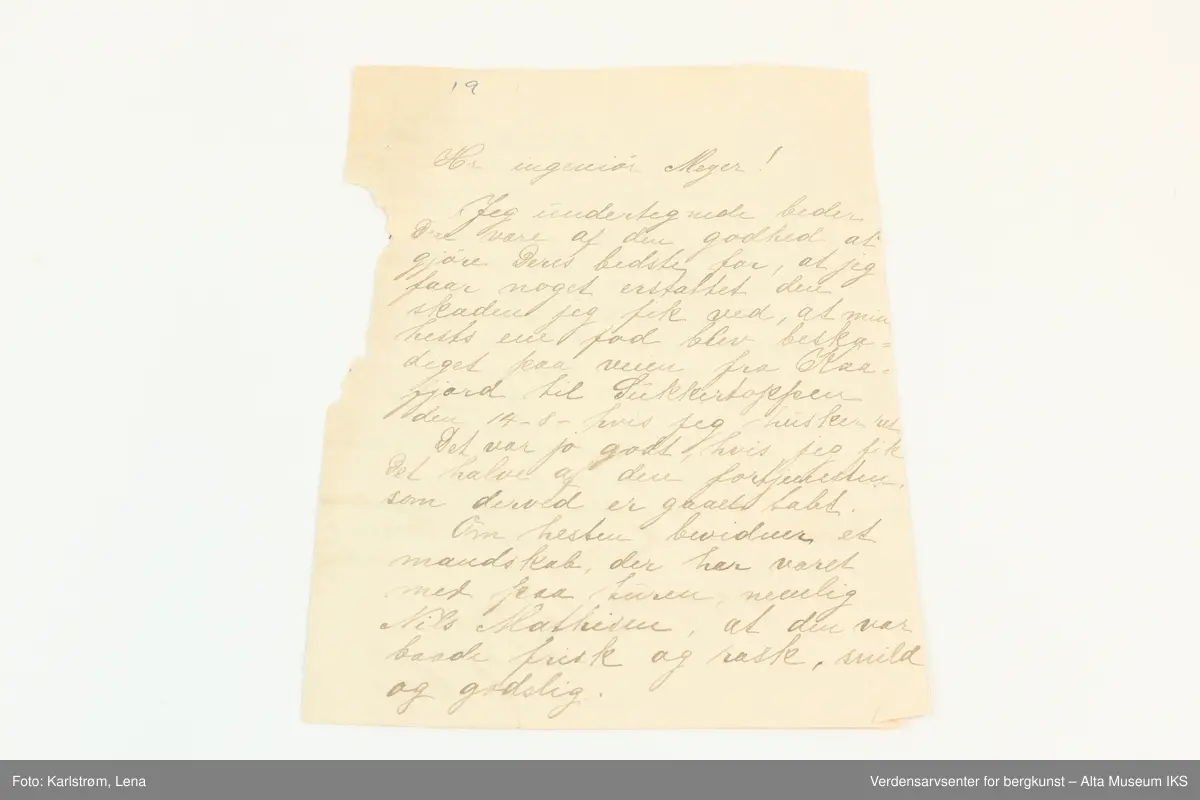 19
Hr ingeniör Meyer!
Jeg undertegnede beder
Dem være af den godhed at
gjøre Deres bedste for, at jeg
faar noget erstattet den
skaden jeg fik ved, at min
hests ene fod blev beska=
diget paa veien fra Kaa=
fjord til Sukkertoppen
den 14-8- hvis jeg husker ret
Det var jo godt, hvis jeg fik
Det halve af den fortjenesten,
som derved er gaaet tabt.
Om hesten bevidner et
mandskab, der har været
med paa turen, nemlig
Nils Mathisen, at den var
baade frisk og rask, snild
og godslig.
Foto: Karlstrøm, Lena
Verdensarvsenter for bergkunst – Alta Museum IKS